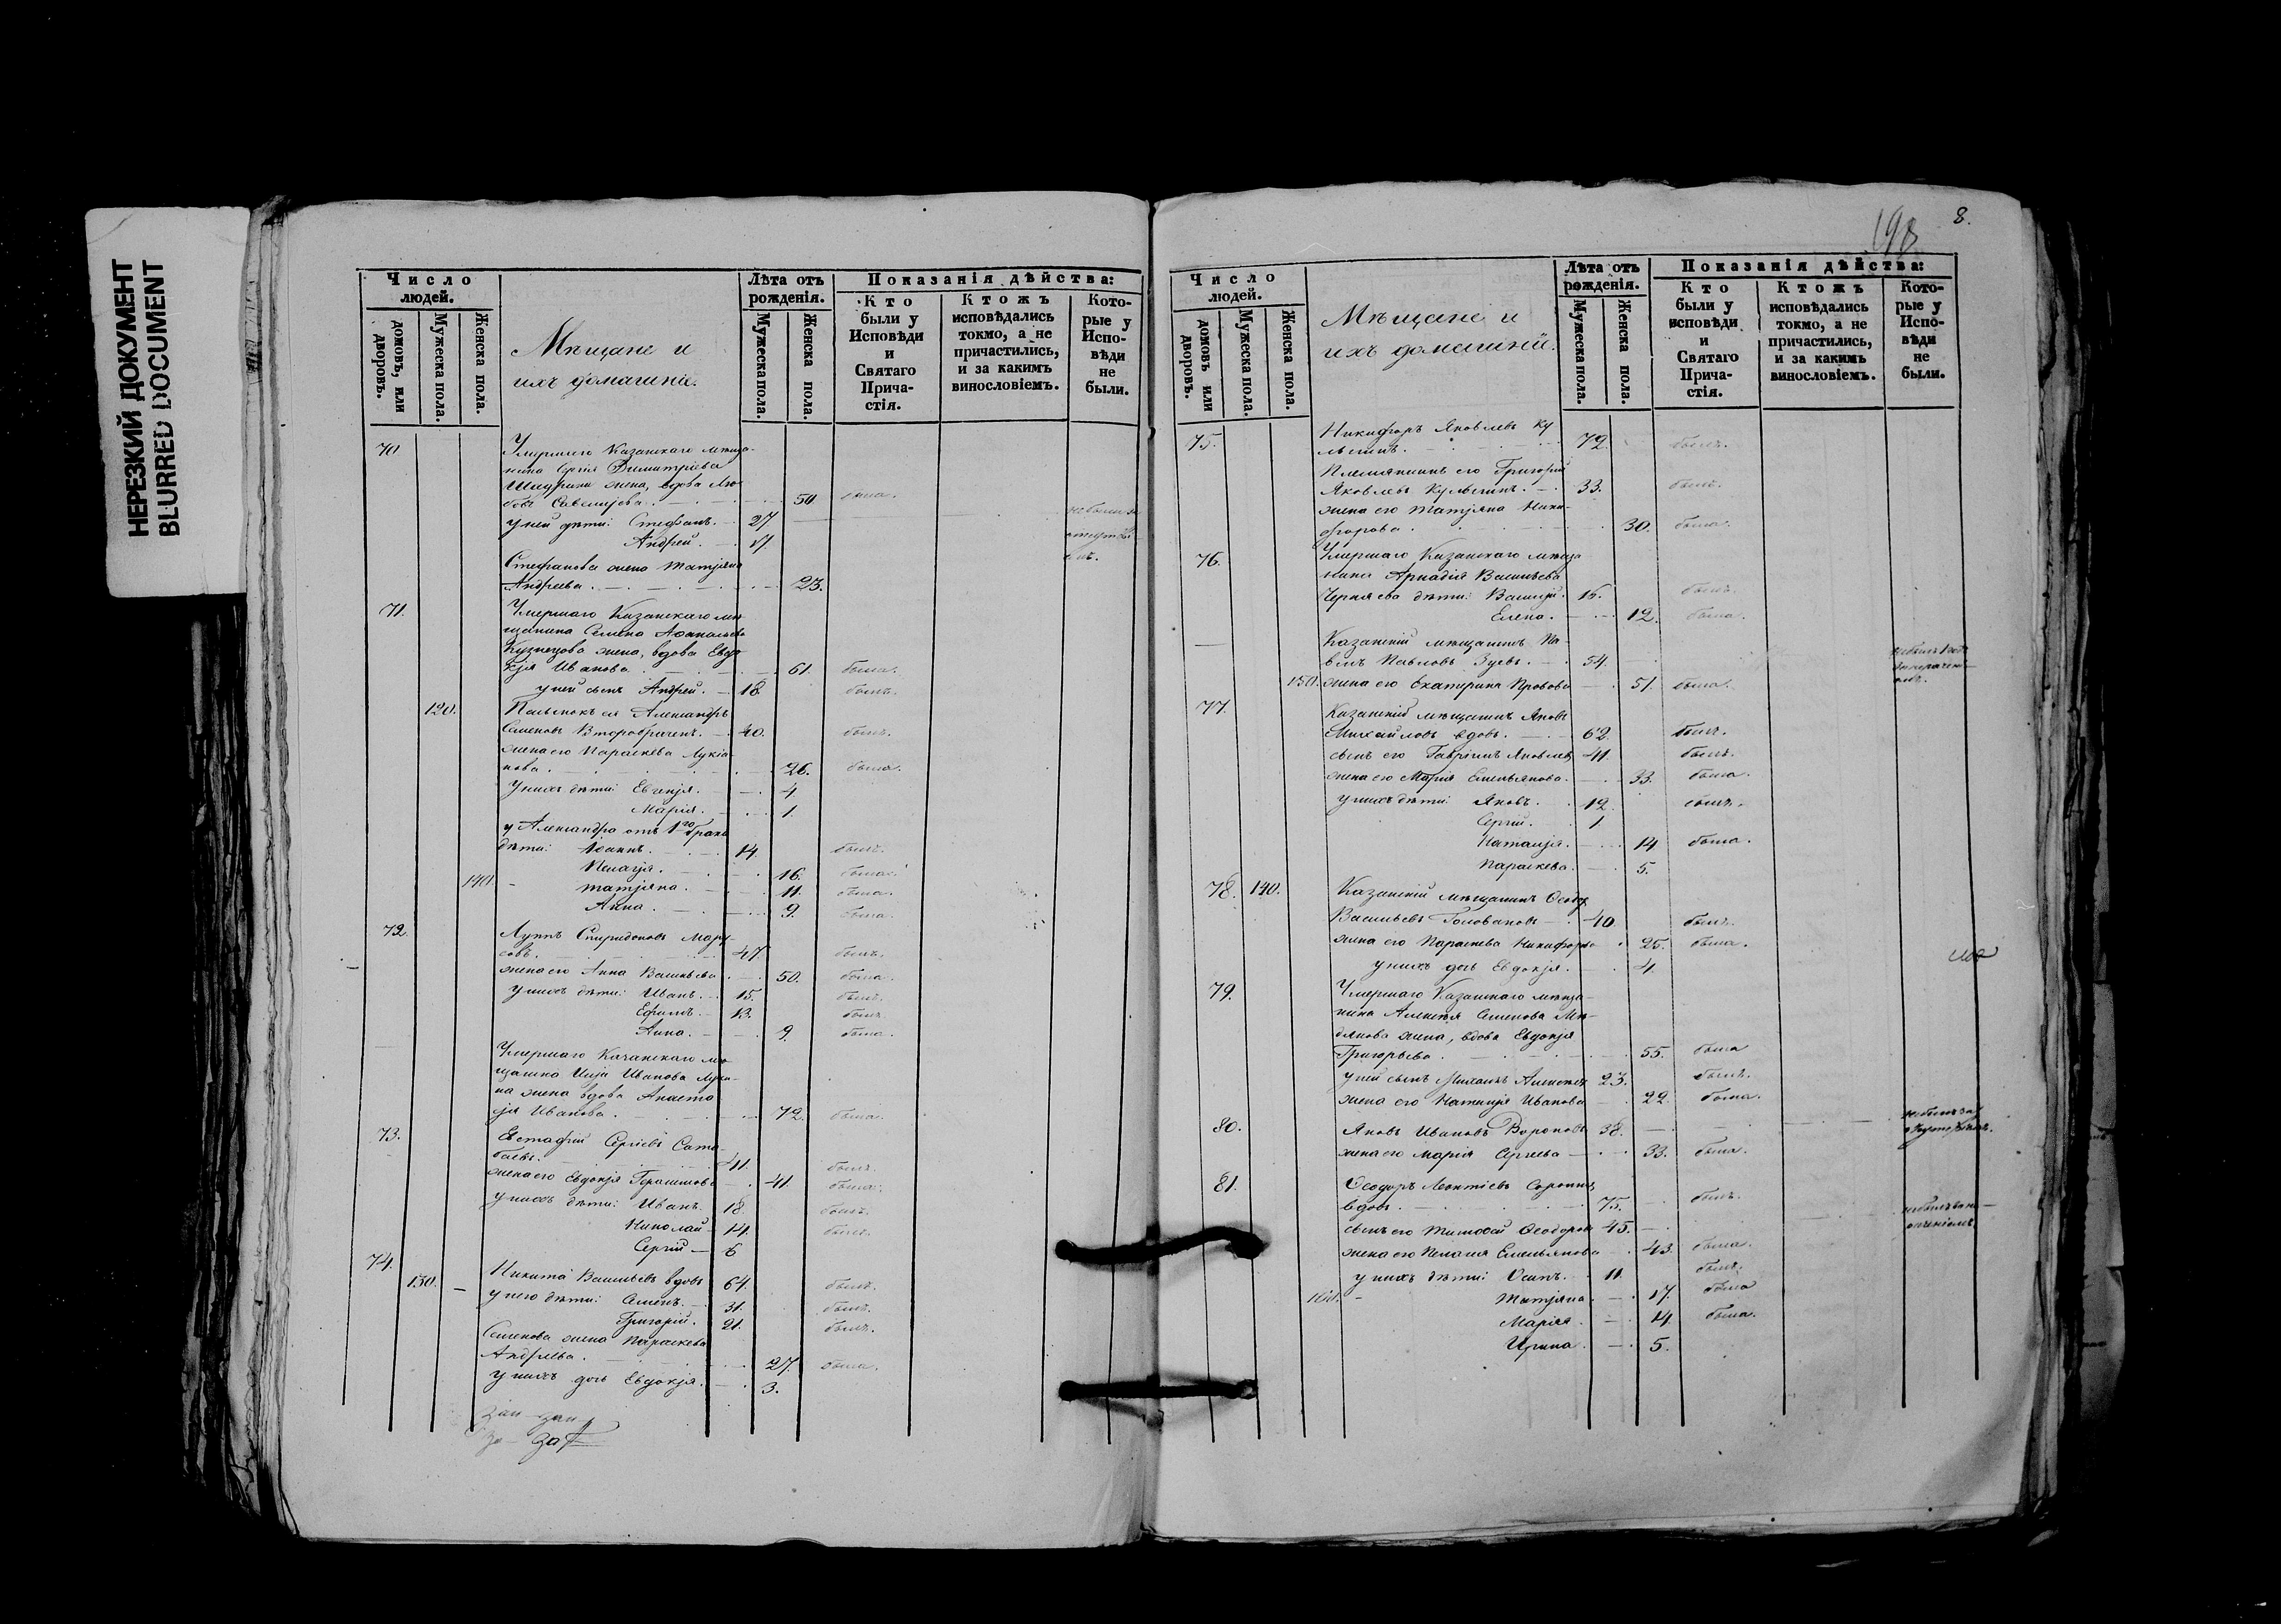 НЕРЕЗКИЙ ДОКУМЕНТ
BLURRED DOCUMENT
Число людей.
домовъ, или дворовъ.
Мужеска пола.
Женска пола.
Мѣщане и
ихъ домашніе.
Лѣта отъ рожденія.
Мужеска пола.
Женска пола.
Показанія дѣйства:
Кто были у Исповѣди и Святаго Прича-стія.
Ктожъ исповѣдались токмо, а не причастились, и за какимъ винословіемъ.
Кото-рые у Испо-вѣди не были.
70 Умершаго Казанскаго мѣща-
нина Сергія Димитріева
жена, вдова Лю-
бовь Савельева. 50 была.
у ней дѣти: Стефанъ. 27
Андрей.
Стефанова жена Татьяна
Андреева. 23.
71. Умершаго Казанскаго мѣ-
щанина Семена
Кузнецова жена, вдова Евдо-
кія Иванова 61. была.
у ней сынъ Андрей. 18. былъ.
120. Пасынокъ ея Александръ
Семеновъ Второбрачен. 40. былъ.
жена его Параскева Лукіа-
нова. 26. была.
у нихъ дѣти: Евгенія. 4
Марія. 1.
у Александра отъ 1го брака
дѣти: Іоаннъ. 14. былъ.
Пелагія. 16. была.
140. Татьяна. 11. была.
Анна. 9. была.
72. Луппъ Спиридоновъ Мару-
совъ. 47 былъ.
жена его Анна Васильева 50. была.
у нихъ дѣти: Иванъ. 15. былъ.
Ефимъ. 13. былъ
Анна. 9. была.
Умершаго Казанскаго мѣ-
щанина Ивана
жена вдова Анаста-
сія Иванова. 72. была.
73. Евстафій Сергіевъ
41. былъ.
жена его Евдокія Герасимова 41. была.
у нихъ дѣти: Иванъ. 18. былъ.
Николай 14. былъ.
Сергій 6
74. Никита Васильевъ вдовъ 64. былъ.
130. у него дѣти: Семенъ. 31. былъ.
Григорій. 21. былъ.
Семенова жена Параскева
Андреева. 27. была.
у нихъ дочь Евдокія. 3.
198
8.
Число людей.
домовъ или дворовъ.
Мужеска пола.
Женска пола.
Мѣщане и
ихъ домашніе.
Лѣта отъ рожденія.
Мужеска пола.
Женска пола.
Показанія дѣйства:
Кто были у исповѣди и Святаго Прича-стія.
Ктожъ исповѣдались токмо, а не причастились, и за какимъ винословіемъ.
Кото-рые у Испо-вѣди не были.
75. Никифоръ Яковлевъ
72. былъ.
Племянникъ его Григорій
Яковлевъ 33. былъ.
жена его Татьяна Ники-
форова. 30. была.
76. Умершаго Казанскаго мѣща
нина Аркадія Васильева
дѣти: Василій. 16. былъ.
Елена. 12. была.
Казанскій мѣщанинъ Па-
велъ Павловъ Зуевъ. 54.
150. жена его Екатерина 51. была.
77. Казанскій мѣщанинъ Яковъ
Михайловъ вдовъ. 62. былъ.
сынъ его Гавріилъ Яковлевъ 41. былъ.
жена его Марія Емельянова. 33. была.
у нихъ дѣти: Яковъ. 12. былъ.
Сергій. 1
Наталія. 14 была.
Параскева. 5.
78. 140. Казанскій мѣщанинъ Ѳеодоръ
Васильевъ Головановъ 40 былъ.
жена его Параскева Никифорова 25. была.
у нихъ дочь Евдокія. 4.
79. Умершаго Казанскаго мѣща-
нина Алексѣя Семенова
жена, вдова Евдокія
Григорьева. 55. была
у ней сынъ Михаилъ Алексѣевъ 23. былъ.
жена его Наталія Иванова 22. была.
80. Яковъ Ивановъ Вороновъ 38.
жена его Марія Сергеева 33. была.
81. Ѳеодоръ Леонтіевъ
вдовъ. 75. былъ.
сынъ его Тимоѳей Ѳеодоровъ 45.
жена его Пелагія Емельянова 43. была.
у нихъ дѣти: Осипъ. 11. былъ.
Татьяна. 17. была
Марія. 14. была.
Ирина. 5.